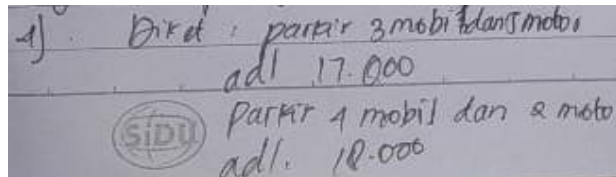 1). Diket : parkir 3 mobil dan 5 motor
adl 17.000
SiDU Parkir 4 mobil dan 2 moto
adl. 18.000